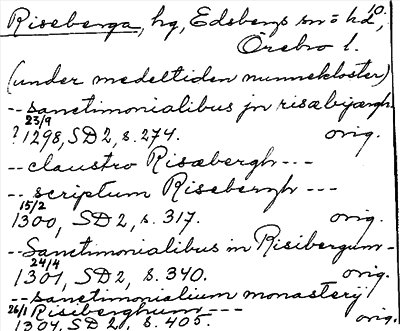 Riseberga, hg, Edsbergs sn o hd,
Örebro l.
(under medeltiden nunnekloster)
-- sanctimonialibus jn risæbijærgh
23/9
? 1298, SD 2, s. 274. orig.
-- claustro Risæbergh ---
-- scriptum Risebergh ---
15/2
1300, SD 2, s. 317. orig.
-- Sanctimonialibus in Risibergum -
24/4
1301, SD 2, s. 340. orig.
-- sanctimonialium monasterij
26/1 Risiberghum ---
1304, SD 2, s. 405. orig.